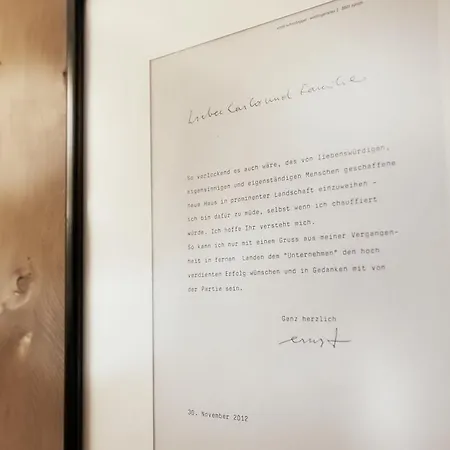 Lieber Carlo und Familie
So verlockend es auch wäre, das von liebenswürdigen,
eigensinnigen und eigenständigen Menschen geschaffene
neue Haus in prominenter Landschaft einzuweihen -
ich bin dafür zu müde, selbst wenn ich chauffiert
würde. Ich hoffe Ihr versteht mich.
So kann ich nur mit einem Gruss aus meiner Vergangen-
heit in fernen Landen dem "Unternehmen" den hoch
verdienten Erfolg wünschen und in Gedanken mit von
der Partie sein.
Ganz herzlich
ernst
30. November 2012